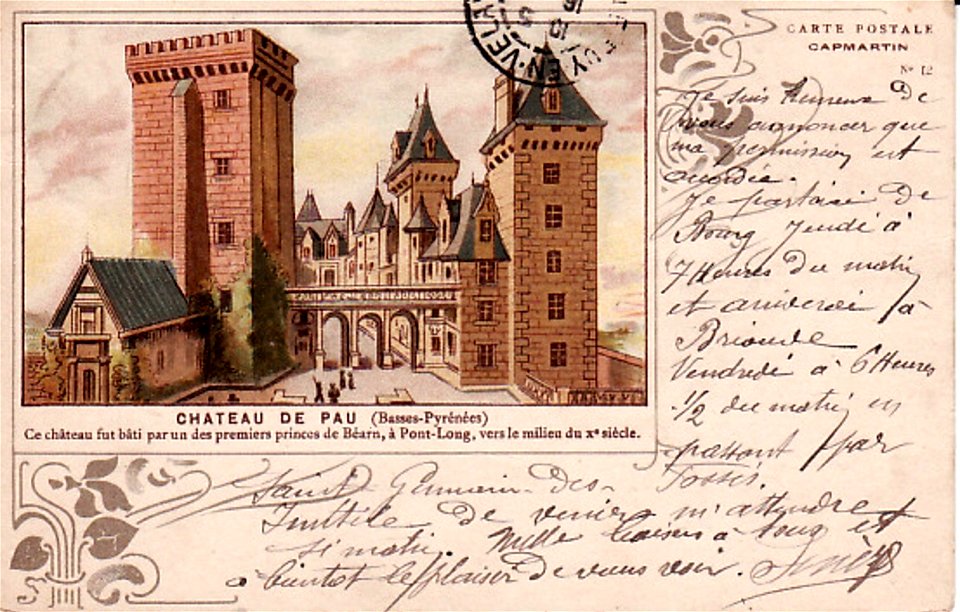 CARTE POSTALE
CAPMARTIN
Nº 12
PUY EN VELAY
CHATEAU DE PAU (Basses-Pyrénées)
Ce château fut bâti par un des premiers princes de Béarn, à Pont-Long, vers le milieu du Xe siècle.
Je suis heureux de
vous annoncer que
ma permission est
accordée.
Je partirai de
Bourg Jeudi à
7 Heures du matin
et arriverai à
Brioude
Vendredi à 6 Heures
1/2 du matin en
passant par
Saint Germain-des-
Fossés.
Inutile de venir m'attendre
si matin. Mille baisers à tous et
à bientot le plaisir de vous voir.